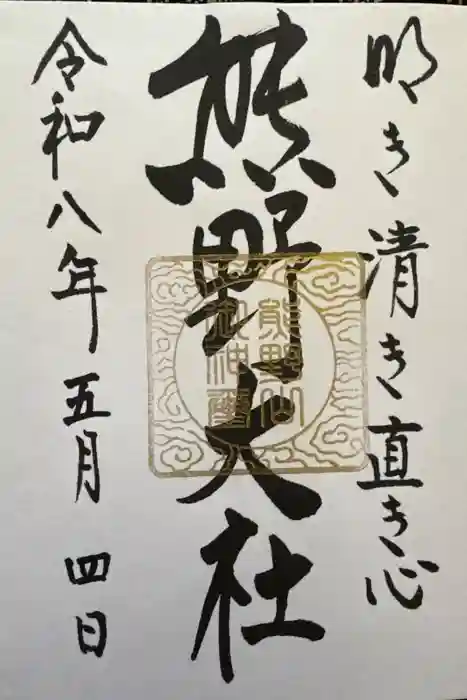 明き清き直き心
熊野大社
熊野山
御神璽
令和八年五月四日